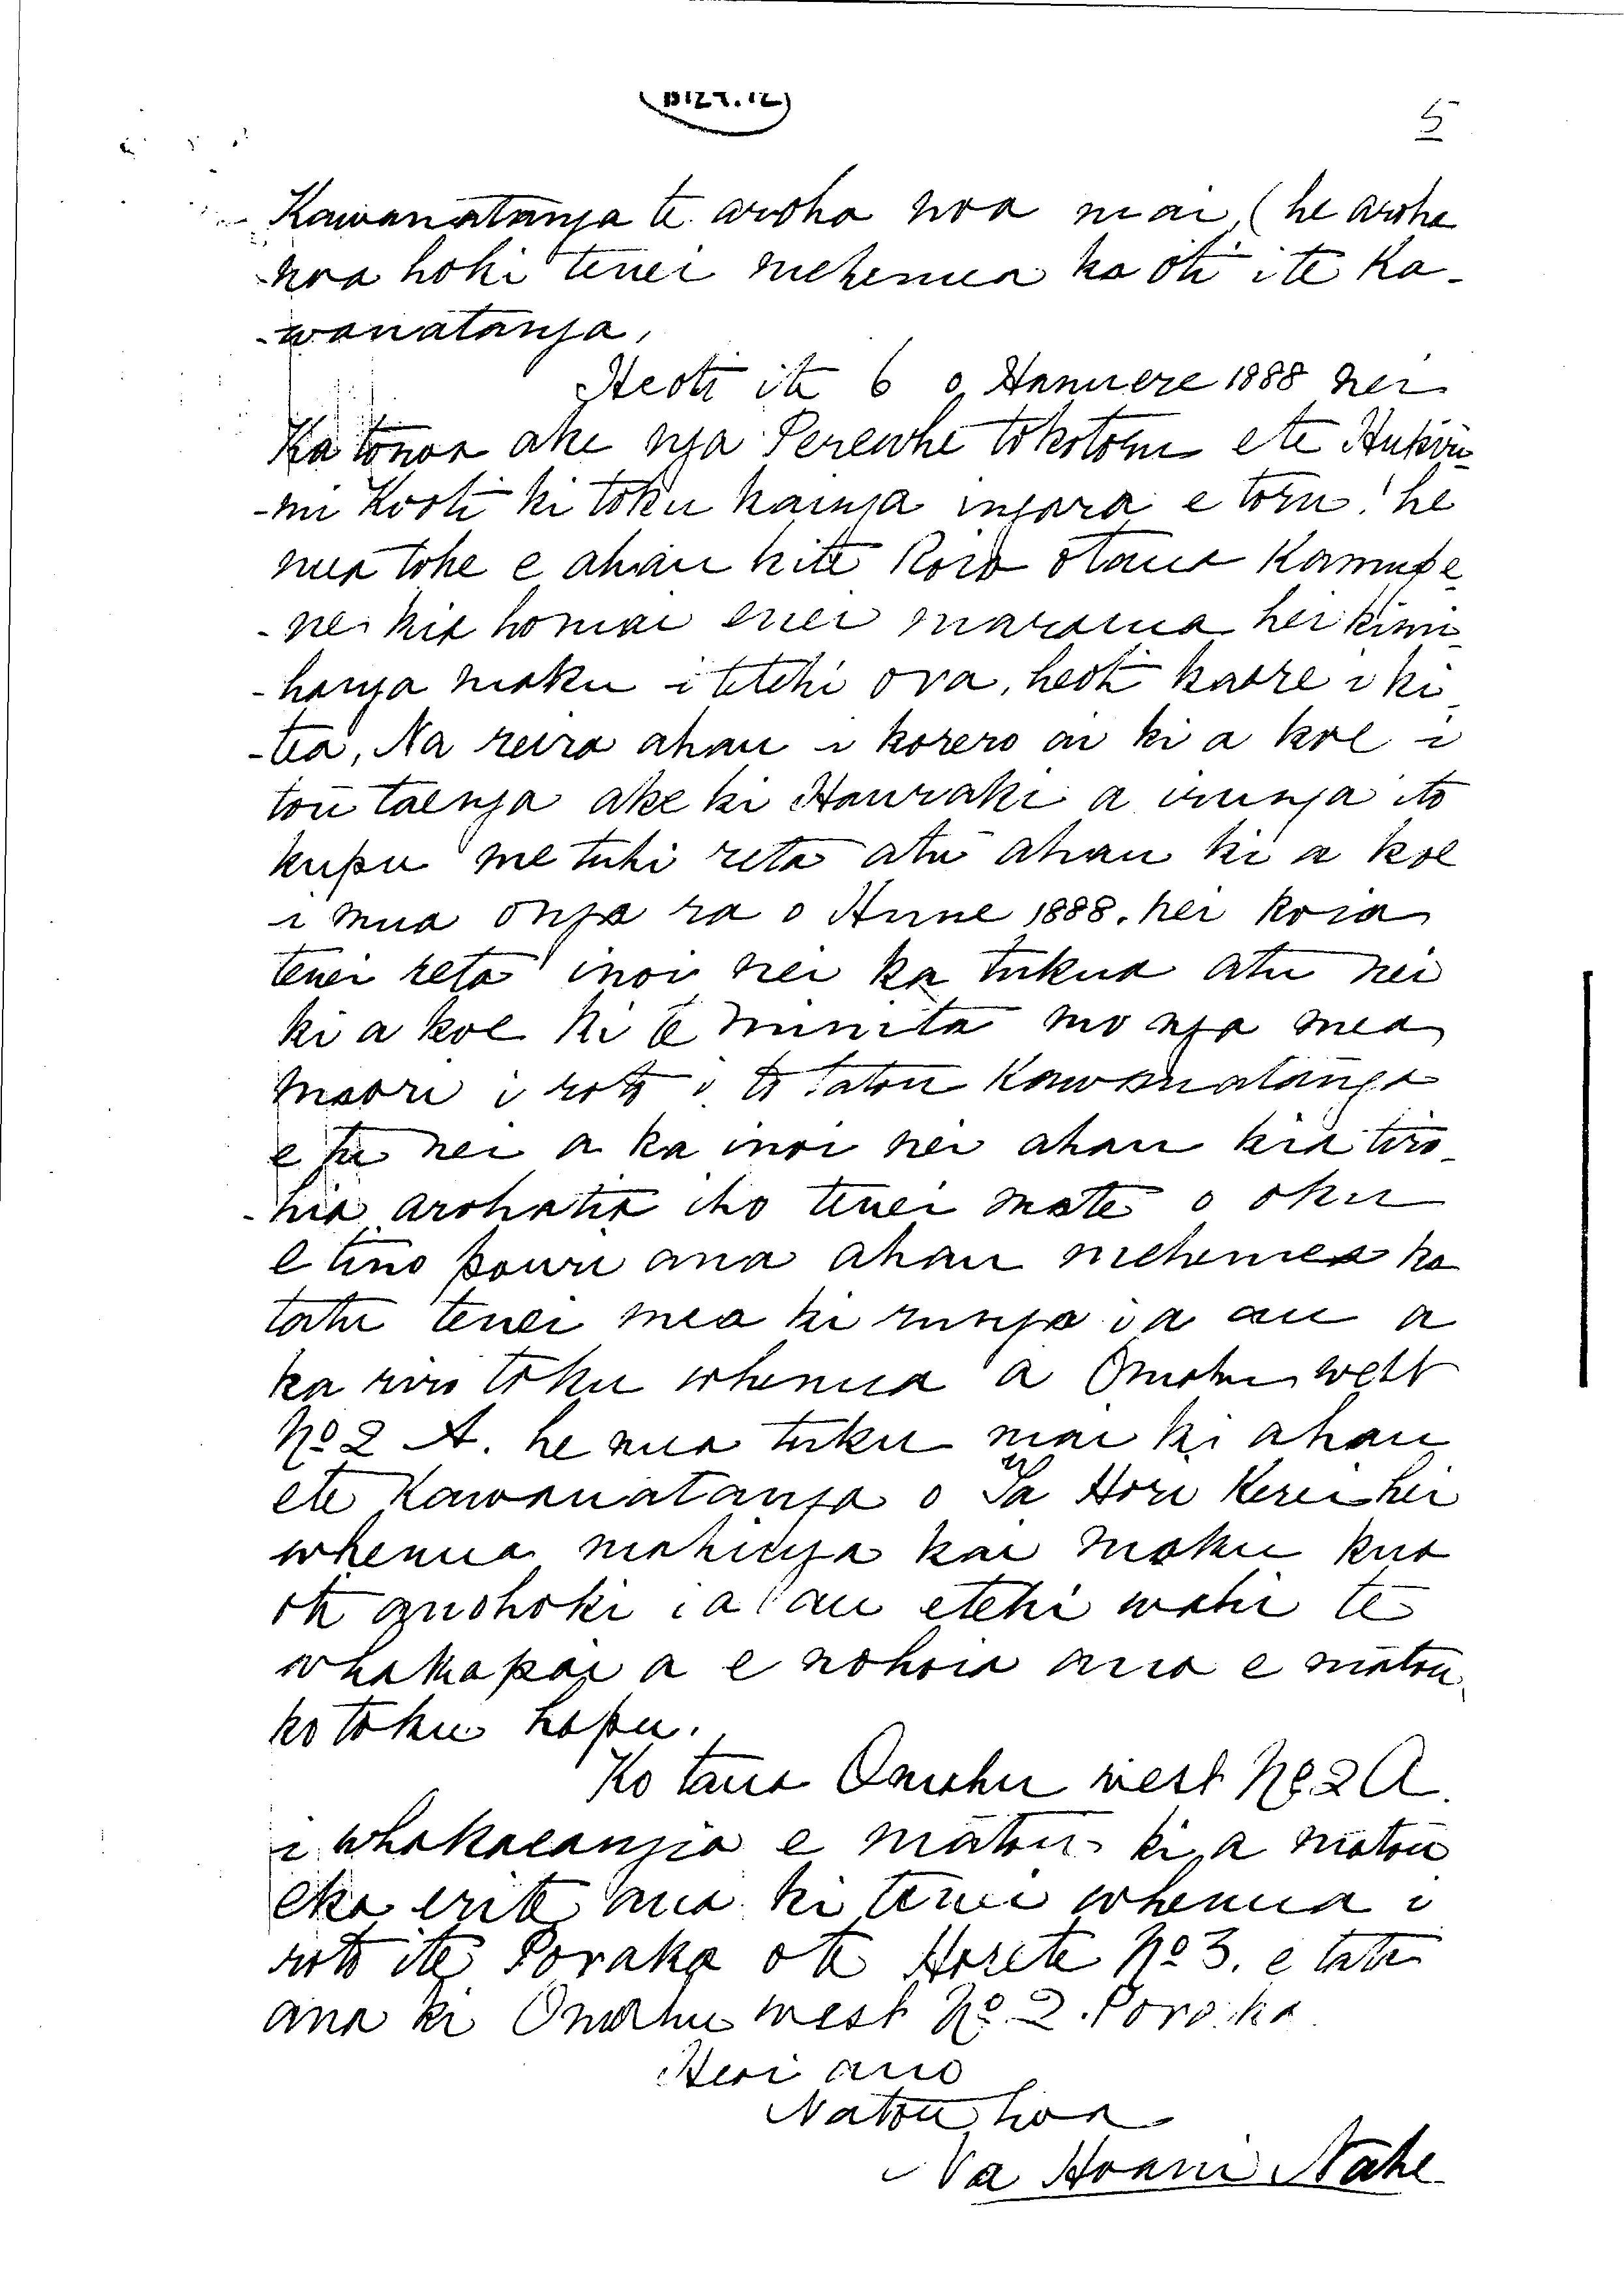 (B127.12)
5
Kawanatanga te aroha noa mai, (he aroha
noa hoki tenei mehemea ka oti i te Ka-
-wanatanga,
Heoti ite 6 o Hanuere 1888 nei
Ka tonoa ake nga Perewhe tokotoru ete Hupiri-
-mi Kooti ki toku kainga ingara e toru! he
mea tohe e ahau kite Roia otaua Kamupe-
-ne kia homai enei marama hei kimi-
-hanga maku i tetehi ora, heoti kaore i ki-
-tea, Na reira ahau i korero ai ki a koe i
tou taenga ake ki Hauraki a irunga ito
kupu me tuhi reta atu ahau ki a koe
i mua onga ra o Hune 1888. nei koia
tenei reta inoi nei ka tukua atu nei
ki a koe ki te minita mo nga mea
maori i roto i to tatou Kawanatanga
e tu nei a ka inoi nei ahau kia tiro-
-hia arohatia iho tenei mate o oku
e tino pouri ana ahau mehemea ka
tatu tenei mea ki runga i a au a
ka riro toku whenua a Omahu west
No 2 A. he mea tuku mai ki ahau
ete Kawanatanga o Ta Hori Kerei hei
whenua mahinga kai maku kua
oti anohoki i a au etehi wahi te
whakapai a e nohoia ana e matou
ko toku hapu.
Ko taua Omahu west No 2 A.
i whakaeangia e matou ki a matou
eka erite ana ki tenei whenua i
roto ite Poraka o te Horete No 3. e tata
ana ki Omahu west No. 2. Poraka
Heoi ano
Natou hoa
Na Hoani Nahe